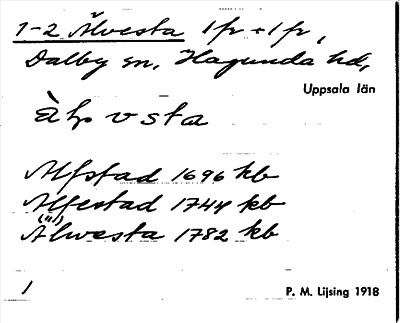 1-2 Älvesta 1/2 + 1/2,
Dalby sn, Hagunda hd,
Uppsala län
vsta
Alfstad 1696 kb
Alfestad 1744 kb
(Äl)
Alwesta 1782 kb
1
P. M. Lijsing 1918